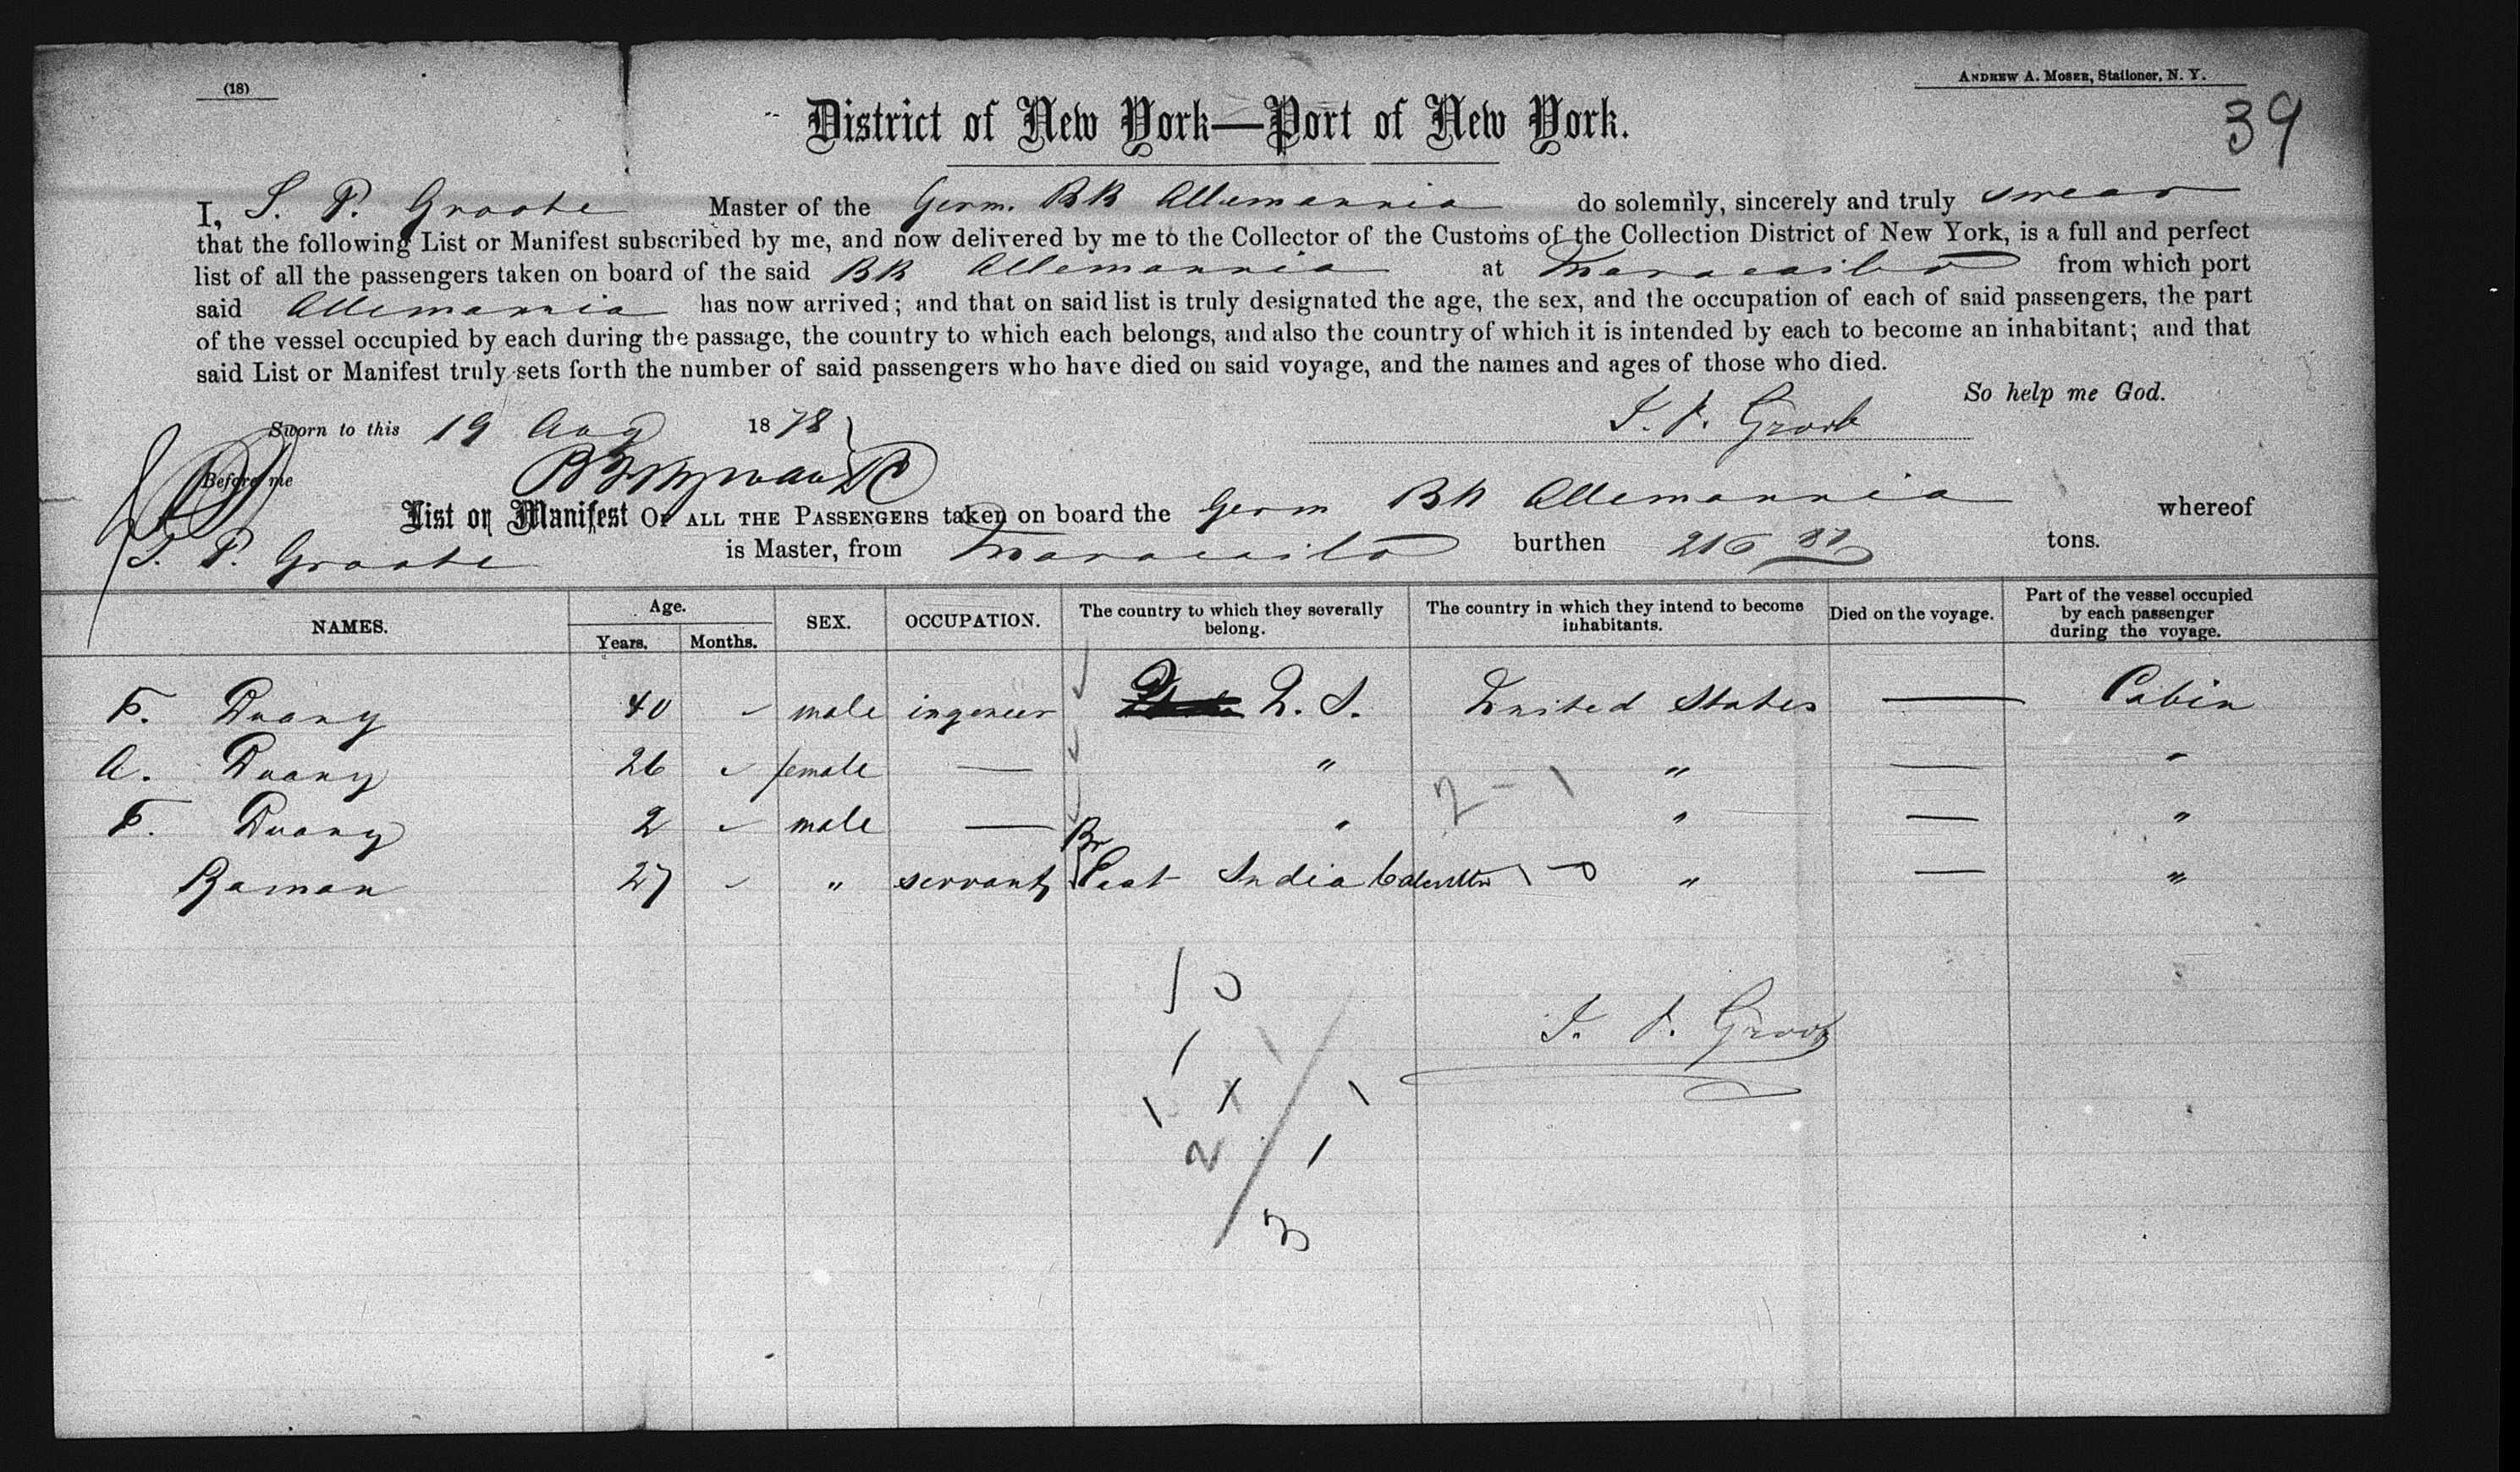 (18)
ANDREW A. MOSER, Stationer, N. Y.
39
District of New York—Port of New York.
I, S. P. Groote Master of the Germ. BK Allemannia do solemnly, sincerely and truly swear
that the following List or Manifest subscribed by me, and now delivered by me to the Collector of the Customs of the Collection District of New York, is a full and perfect
list of all the passengers taken on board of the said BK Allemannia at Maracaibo from which port
said Allemannia has now arrived; and that on said list is truly designated the age, the sex, and the occupation of each of said passengers, the part
of the vessel occupied by each during the passage, the country to which each belongs, and also the country of which it is intended by each to become an inhabitant; and that
said List or Manifest truly sets forth the number of said passengers who have died on said voyage, and the names and ages of those who died.
So help me God.
Sworn to this 19 Aug 1878
Before me
List or Manifest OF ALL THE PASSENGERS taken on board the Germ BK Allemannia whereof
S. P. Groote is Master, from Maracaibo burthen 216 tons.
NAMES. Age. Years. Months. SEX. OCCUPATION. The country to which they severally belong. The country in which they intend to become inhabitants. Died on the voyage. Part of the vessel occupied by each passenger during the voyage.
F. Duany 40 male ingeneer U. S. United States — Cabin
A. Duany 26 female — " " — "
F. Duany 2 male — " " — "
2 - 1
Br
Raman 27 " servant East India Calcutta 1 - 0 " — "
1 0
1
1 x 1
2 1
3